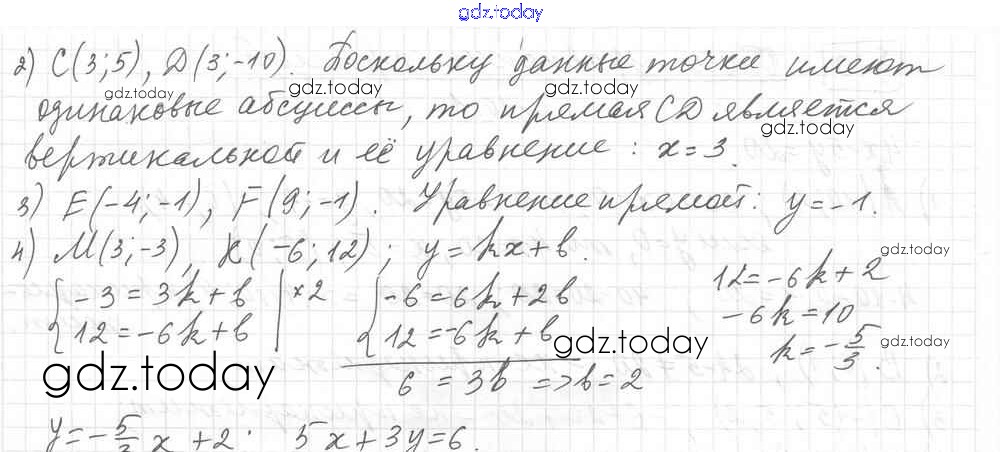 gdz.today
2) C(3;5), D(3;-10). Поскольку данные точки имеют
gdz.today gdz.today
одинаковые абсциссы, то прямая CD является
gdz.today
вертикальной и её уравнение: x=3.
3) E(-4;-1), F(9;-1). Уравнение прямой: y=-1.
4) M(3;-3), K(-6;12); y=kx+b.
{-3=3k+b | ×2 {-6=6k+2b 12=-6k+2
gdz.today
{12=-6k+b | {12=-6k+b -6k=10
gdz.today gdz.today gdz.today
6=3b => b=2 k=-5/3.
y=-5/3 x+2; 5x+3y=6.